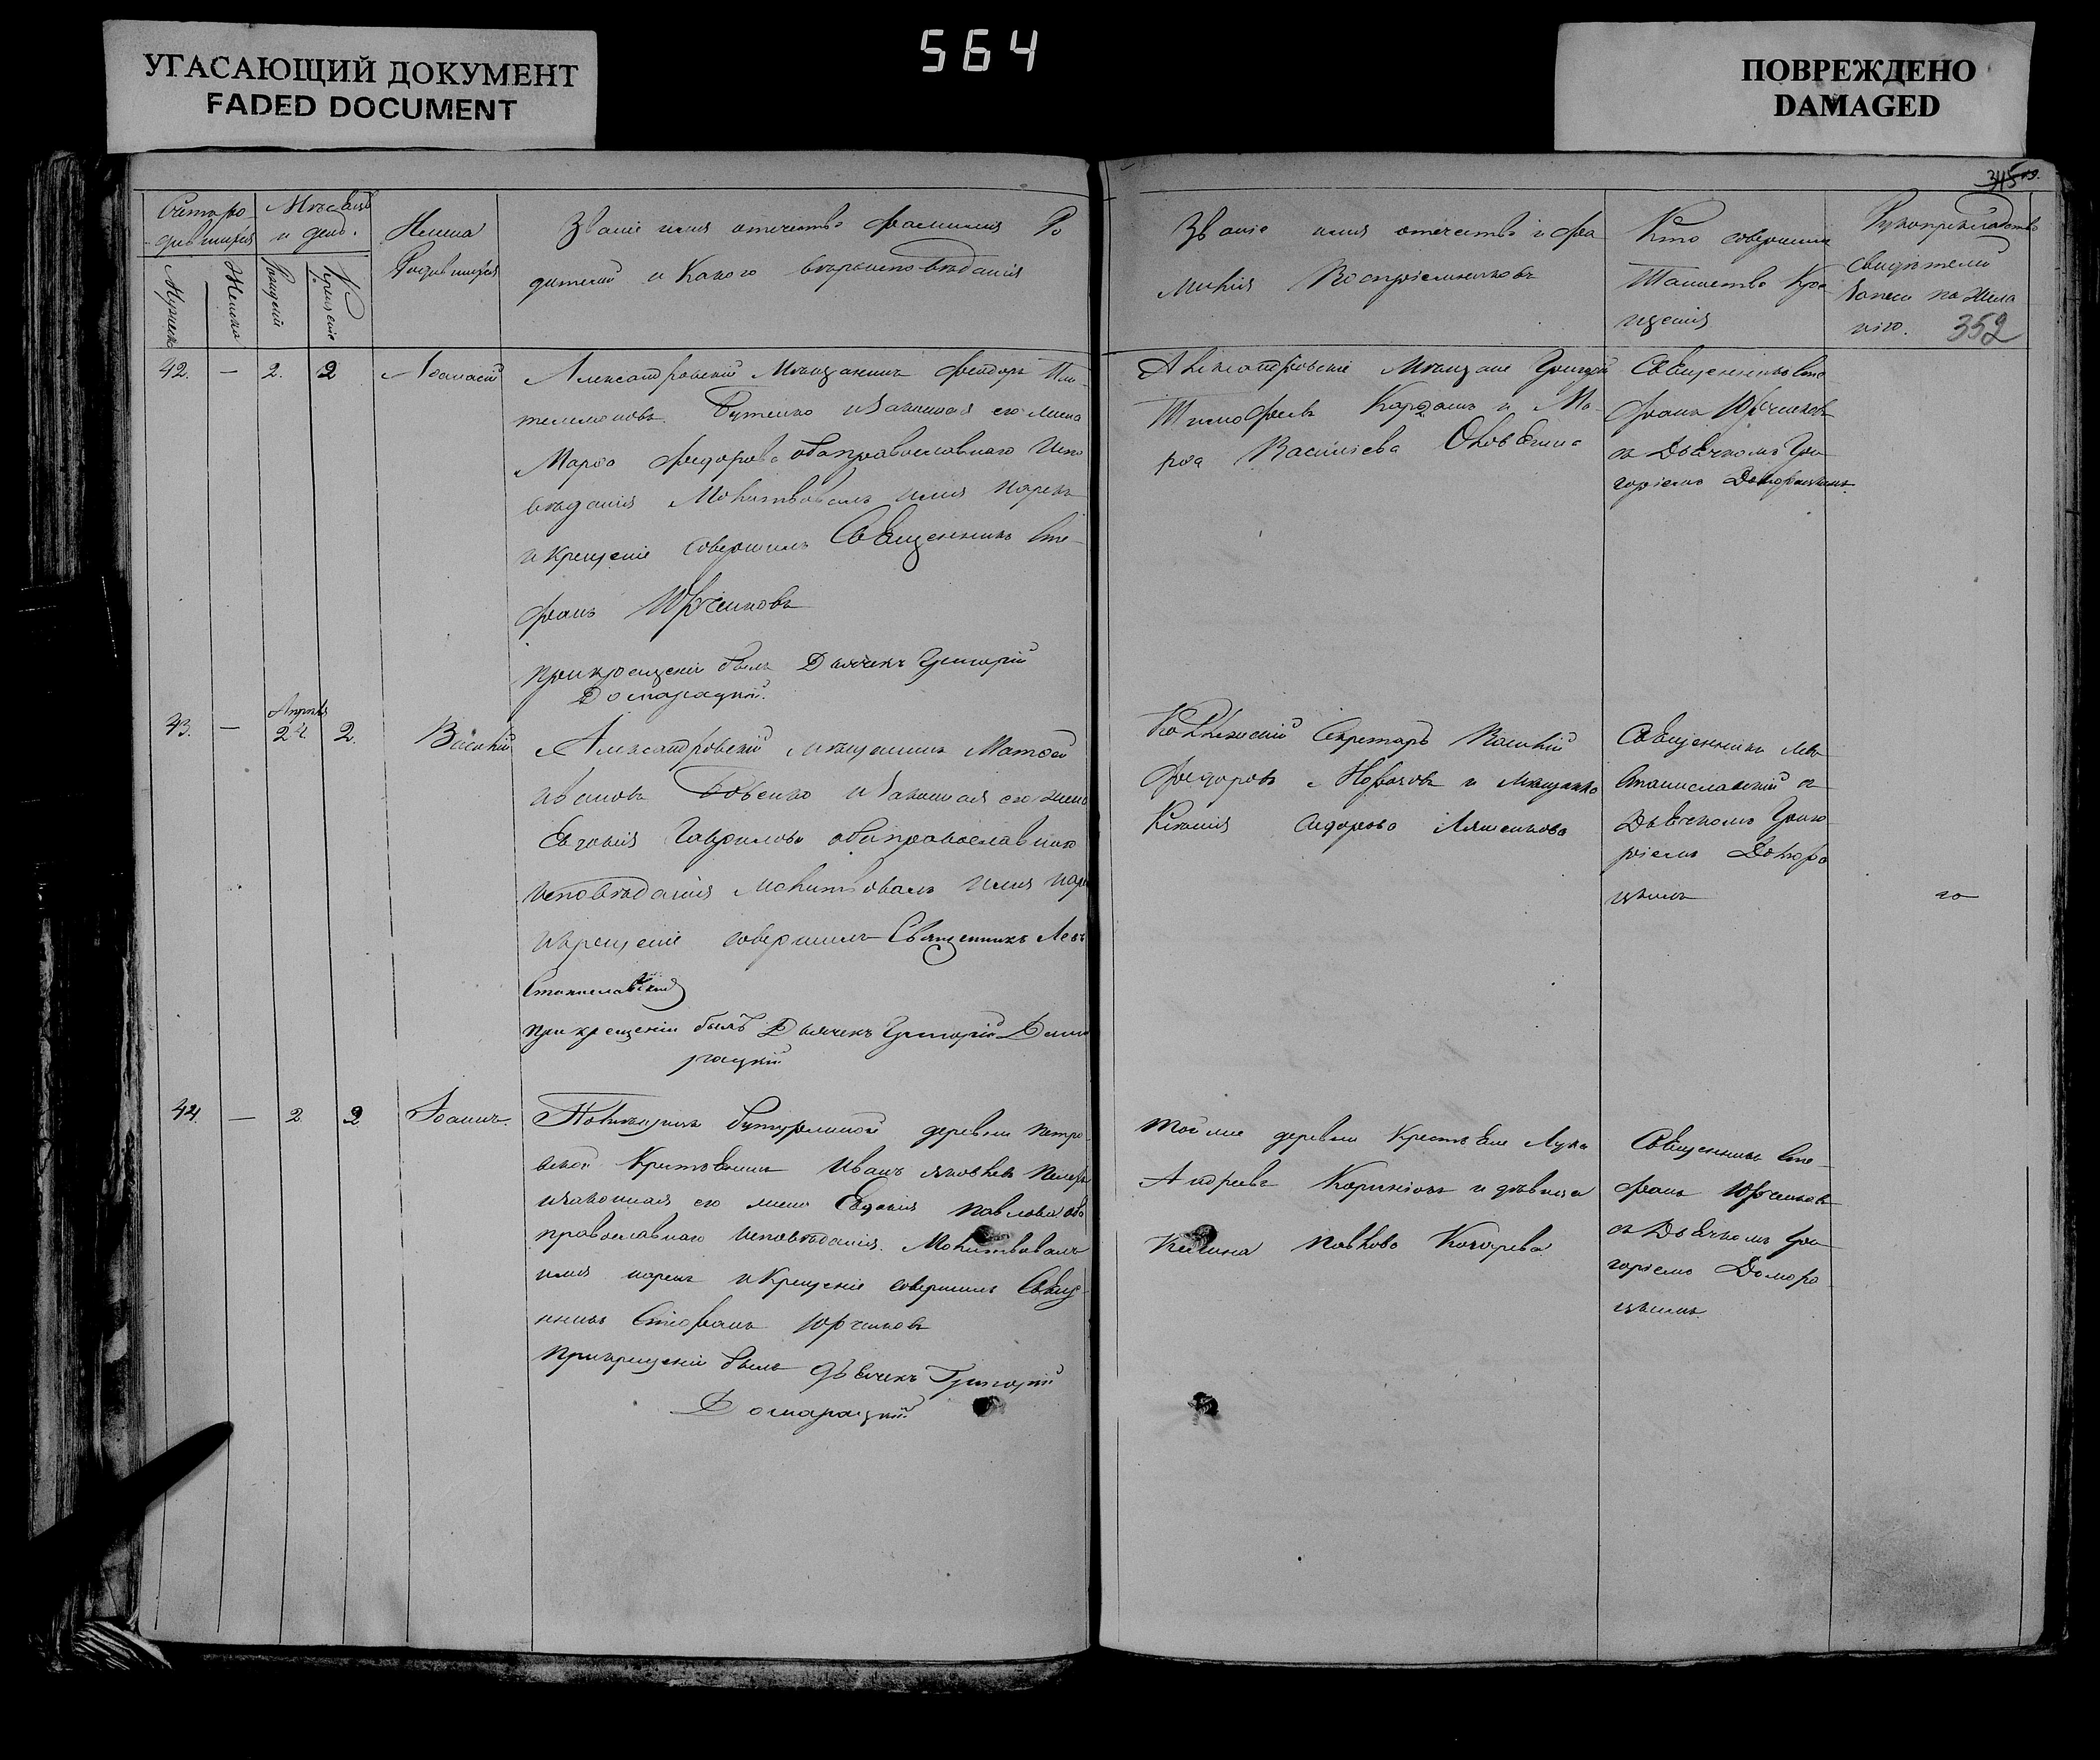 УГАСАЮЩИЙ ДОКУМЕНТ
FADED DOCUMENT
564
ПОВРЕЖДЕНО
DAMAGED
345
352
Счетъ ро
дившихся
Мѣсяцъ
и день.
Мужеска
Женска
Рожденій
Крещеніе
Имена
Родившихся
Званіе имя отечество фамилія Ро
дителей и Какого вѣроисповѣданія
Званіе имя отечество и фа
милія Воспріемниковъ
Кто совершалъ
Таинство Кре
щенія
Рукоприкладство
Свидѣтелей
записи по жела
нію.
42. — 2. 2 Афанасій
Александровскій Мѣщанинъ Феодоръ Пан
телемоновъ Бутенко и законная его жена
Марфа Федорова оба православнаго Испо
вѣданія Молитвовалъ имя нарекъ
и крещеніе совершилъ Священникъ Сте
фанъ Юрченковъ
при крещеніи былъ Дьячекъ Григорій
Домарацкій.
Александровскіе Мѣщане Григорій
Тимофеевъ и Ма
рфа Васильева
Священникъ Сте
фанъ Юрченковъ
съ Дьячкомъ Гри
горіемъ Доморацкимъ.
43. — Апрѣля 24. 2. Василій
Александровскій мѣщанинъ Матфей
Ивановъ Бовенко и законная его жена
Евгенія Гаврилова оба православнаго
исповѣданія Молитвовалъ имя наре
и крещеніе совершилъ Священникъ Левъ
Станиславскій
при крещеніи былъ Дьячекъ Григорій Дома
рацкій
Коллежскій Секретарь Василій
Федоровъ и мѣщанка
Ксенія Сидорова Ляшенкова
Священникъ Левъ
Станиславскій съ
Дьячкомъ Григо
ріемъ Домора
цкимъ
44. — 2 2 Іоаннъ.
Помѣщика деревни Петро
вской Крестьянинъ Иванъ Яковлевъ
и законная его жена Евдокія Павлова оба
православнаго исповѣданія. Молитвовалъ
имя нарекъ и Крещеніе совершилъ Свящ
нникъ Стефанъ Юрченковъ
При крещеніи былъ дьячекъ Григорій
Домарацкій
той же деревни Крестьяне Лука
Андреевъ и дѣвица
Павлова
Священникъ Сте
фанъ Юрченковъ
съ Дьячкомъ Гри
горіемъ Доморо
цкимъ.